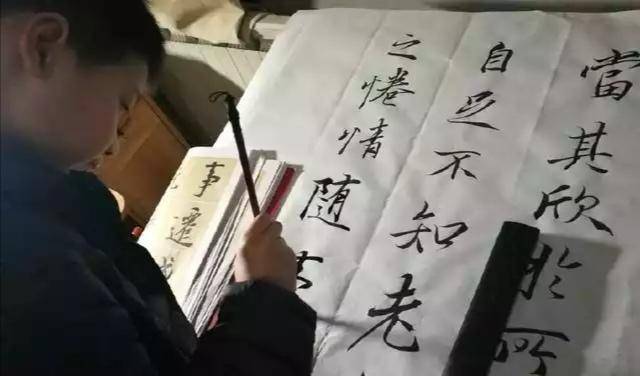 當其欣於所
自足不知老
之惓情隨
事遷